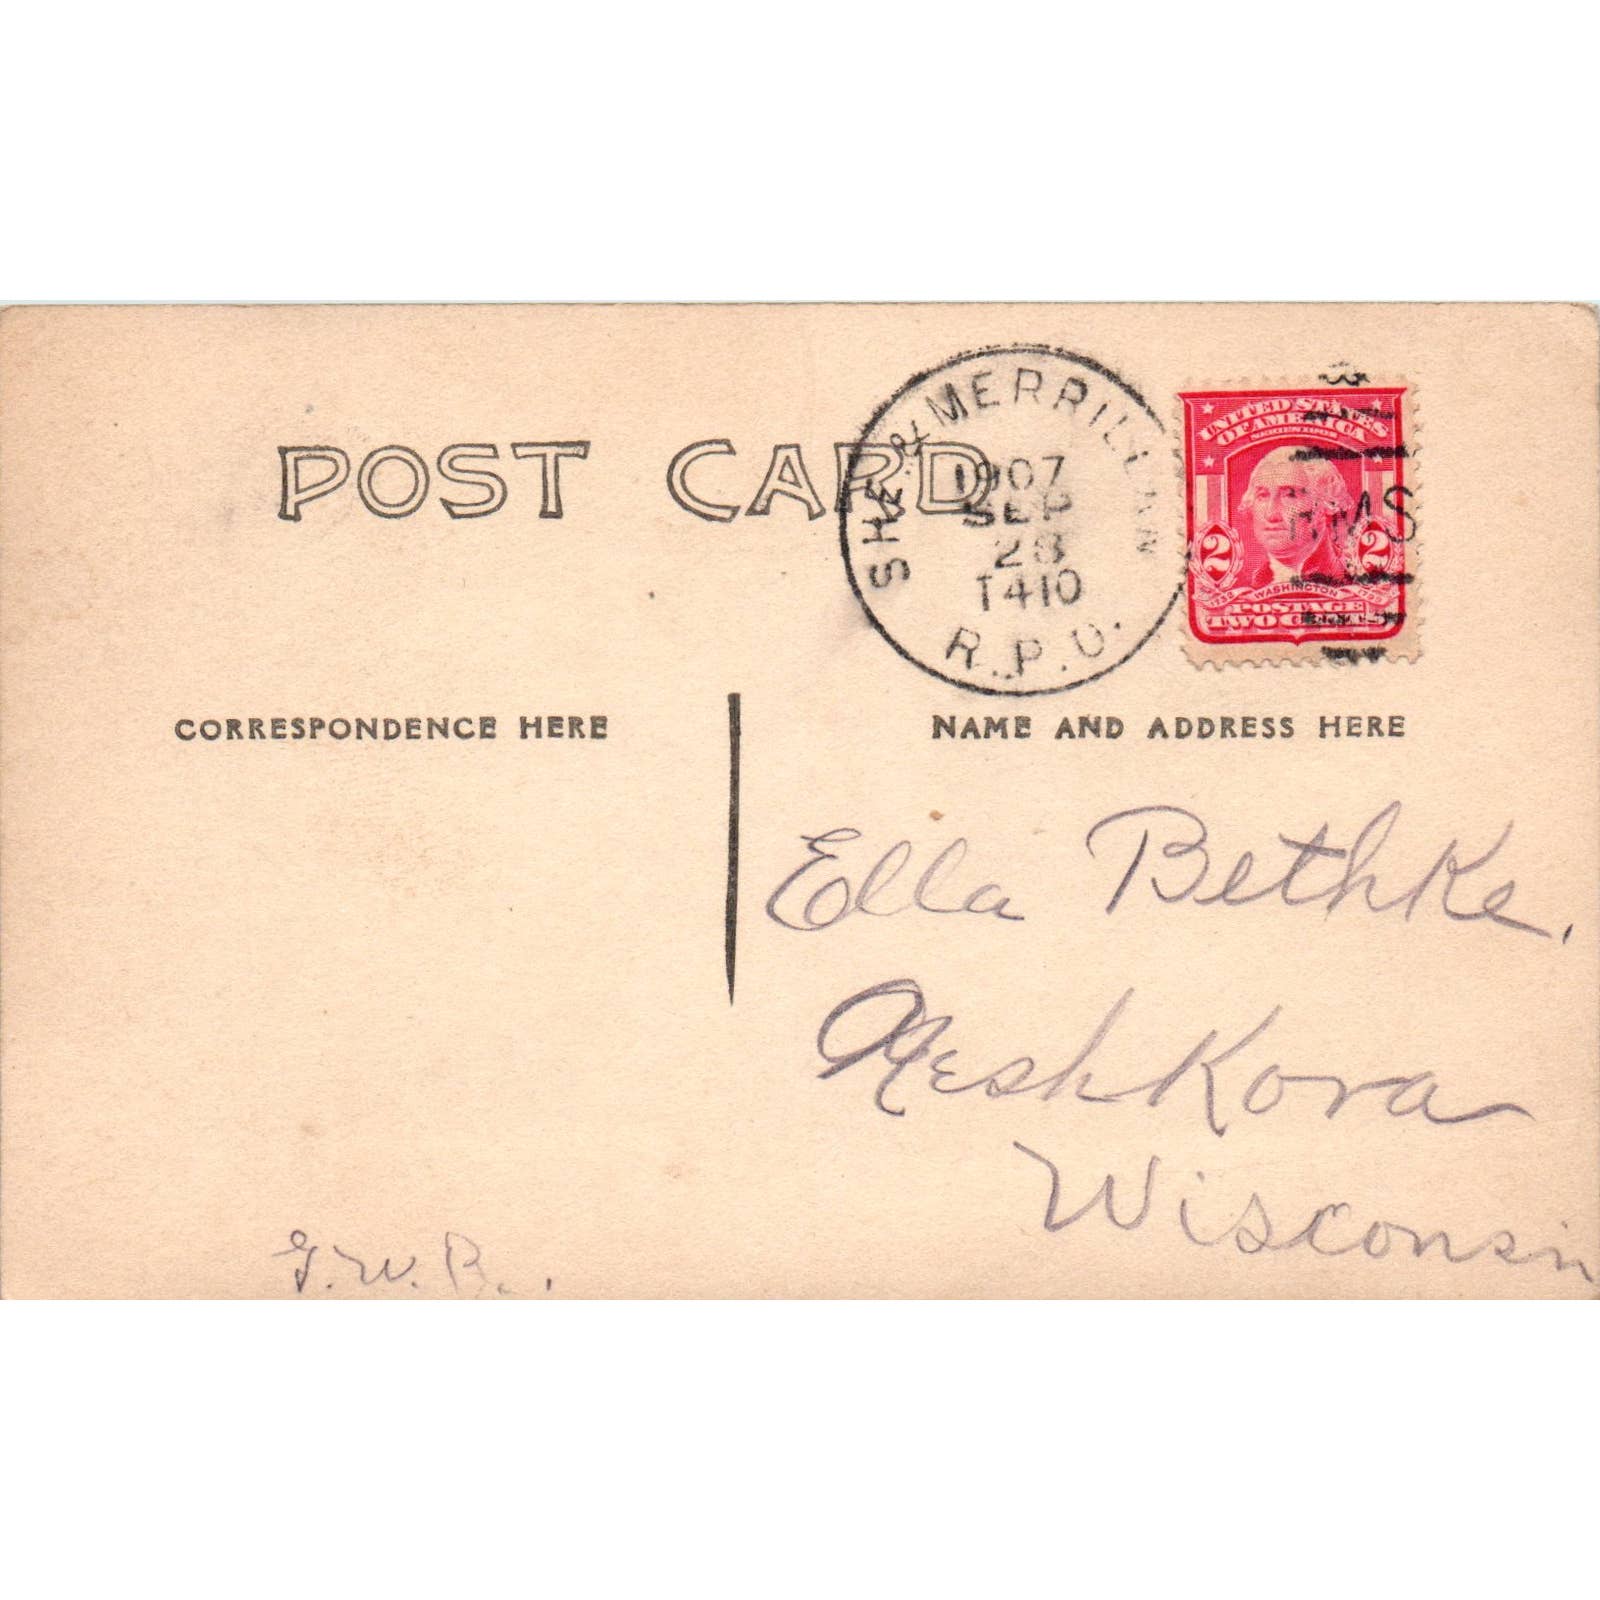 POST CARD
SHE. & MERRILLAN
1907
SEP
28
T410
R.P.O.
UNITED STATES
OF AMERICA
SERIES 1902
RMS
2 2
1732 WASHINGTON 1799
POSTAGE
TWO CENTS
CORRESPONDENCE HERE
NAME AND ADDRESS HERE
Ella Bethke,
Neshkora
Wisconsin
G.W.B.